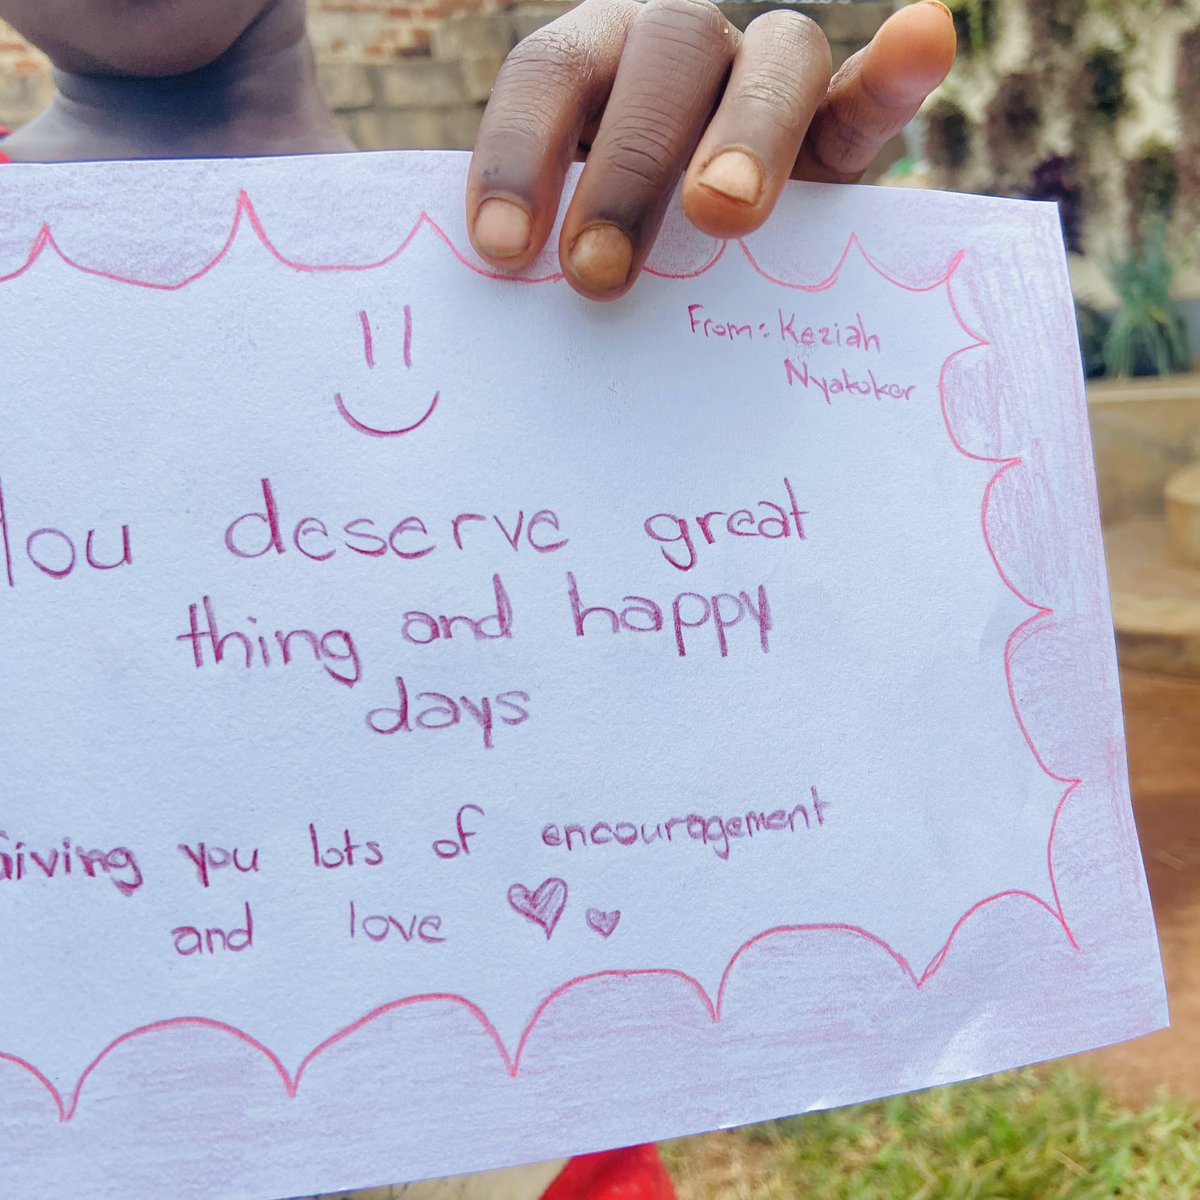 From: Keziah
Nyakoker
You deserve great
thing and happy
days
Giving you lots of encouragement
and love